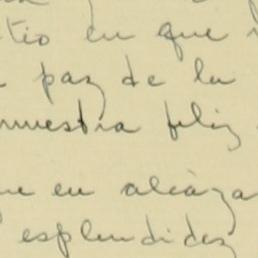 tio en que
paz de la
muestra feliz
ue en alcáza
esplendidez